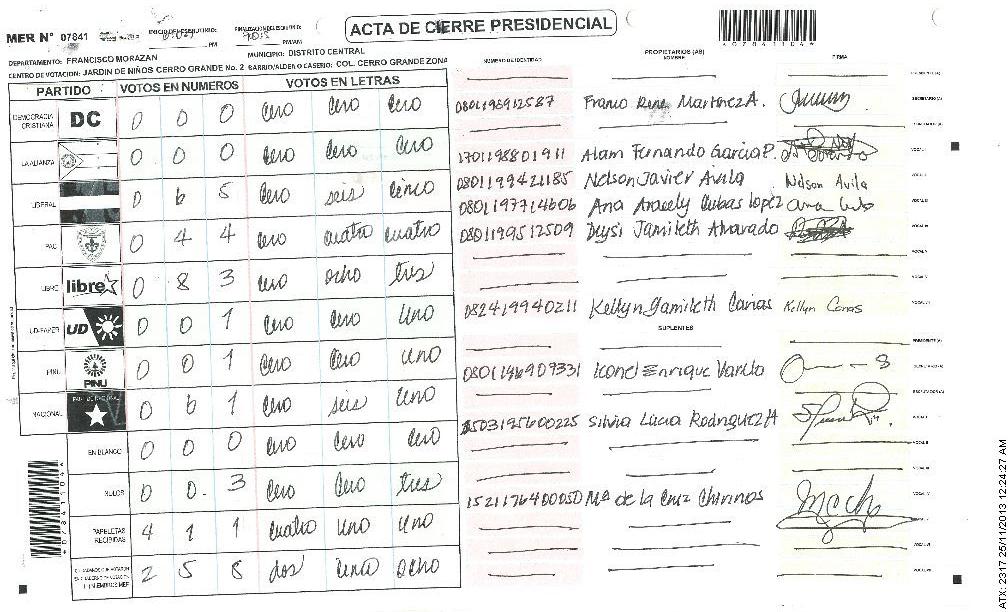 ACTA DE CIERRE PRESIDENCIAL
MER N° 07841
PM
PM/AM
DEPARTAMENTO: FRANCISCO MORAZAN
MUNICIPIO: DISTRITO CENTRAL
CENTRO DE VOTACION: JARDIN DE NIÑOS CERRO GRANDE No. 2 BARRIO/ALDEA O CASERIO: COL. CERRO GRANDE ZONA
PARTIDO VOTOS EN NUMEROS VOTOS EN LETRAS
DEMOCRACIA CRISTIANA DC 0 0 0 Cero Cero Cero
LA ALIANZA 0 0 0 Cero Cero Cero
LIBERAL 0 6 5 Cero seis cinco
PAC 0 4 4 Cero cuatro cuatro
LIBRE libre 0 8 3 Cero ocho tres
UD-FAPER UD 0 0 1 Cero Cero uno
PINU PINU 0 0 1 Cero Cero uno
NACIONAL 0 6 1 Cero seis uno
EN BLANCO 0 0 0 Cero Cero Cero
NULOS 0 0. 3 Cero Cero tres
PAPELETAS RECIBIDAS 4 1 1 cuatro uno uno
2 5 8 dos ocho
NUMERO DE IDENTIDAD
PROPIETARIOS (AS)
NOMBRE
FIRMA
PRESIDENTE (A)
0801198912587 Franco Rene Martinez A. SECRETARIO (A)
1701198801911 Alam Fernando Garcia P. VOCAL I
0801199421185 Nelson Javier Avila Nelson Avila
0801197714606 Ana Aracely Cubas Lopez
0801199512509 Deysi Jamileth Alvarado
082419940211 Kellyn Jamileth Canas Kellyn Canas
SUPLENTES
PRESIDENTE (A)
0801196909331 Leonel Enrique Varelo
0503195600225 Silvia Lucia Rodriguez A
1521176400050 Mª de la Cruz Chirinos
*07841104*
*07841104*
ATX: 2317 25/11/2013 12:24:27 AM